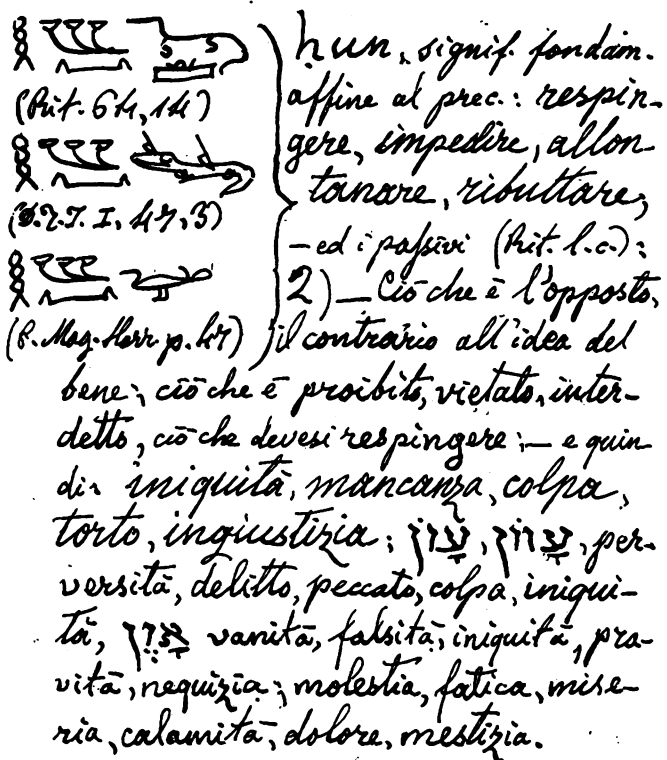 (Rit. 64, 14)
(D. T. I. I, 47, 3)
(P. Mag. Harr. p. 47)
hun, signif. fondam.
affine al prec.: respin-
gere, impedire, allon-
tanare, ributtare;
— ed i passivi (Rit. l.c.):
2) — Ciò che è l'opposto,
il contrario all'idea del
bene; ciò che è proibito, vietato, inter-
detto, ciò che devesi respingere; — e quin-
di: iniquità, mancanza, colpa,
torto, ingiustizia; עָון, עָוון, per-
versità, delitto, peccato, colpa, iniqui-
tà, אָוֶן vanità, falsità, iniquità, pra-
vità, nequizia; molestia, fatica, mise-
ria, calamità, dolore, mestizia.